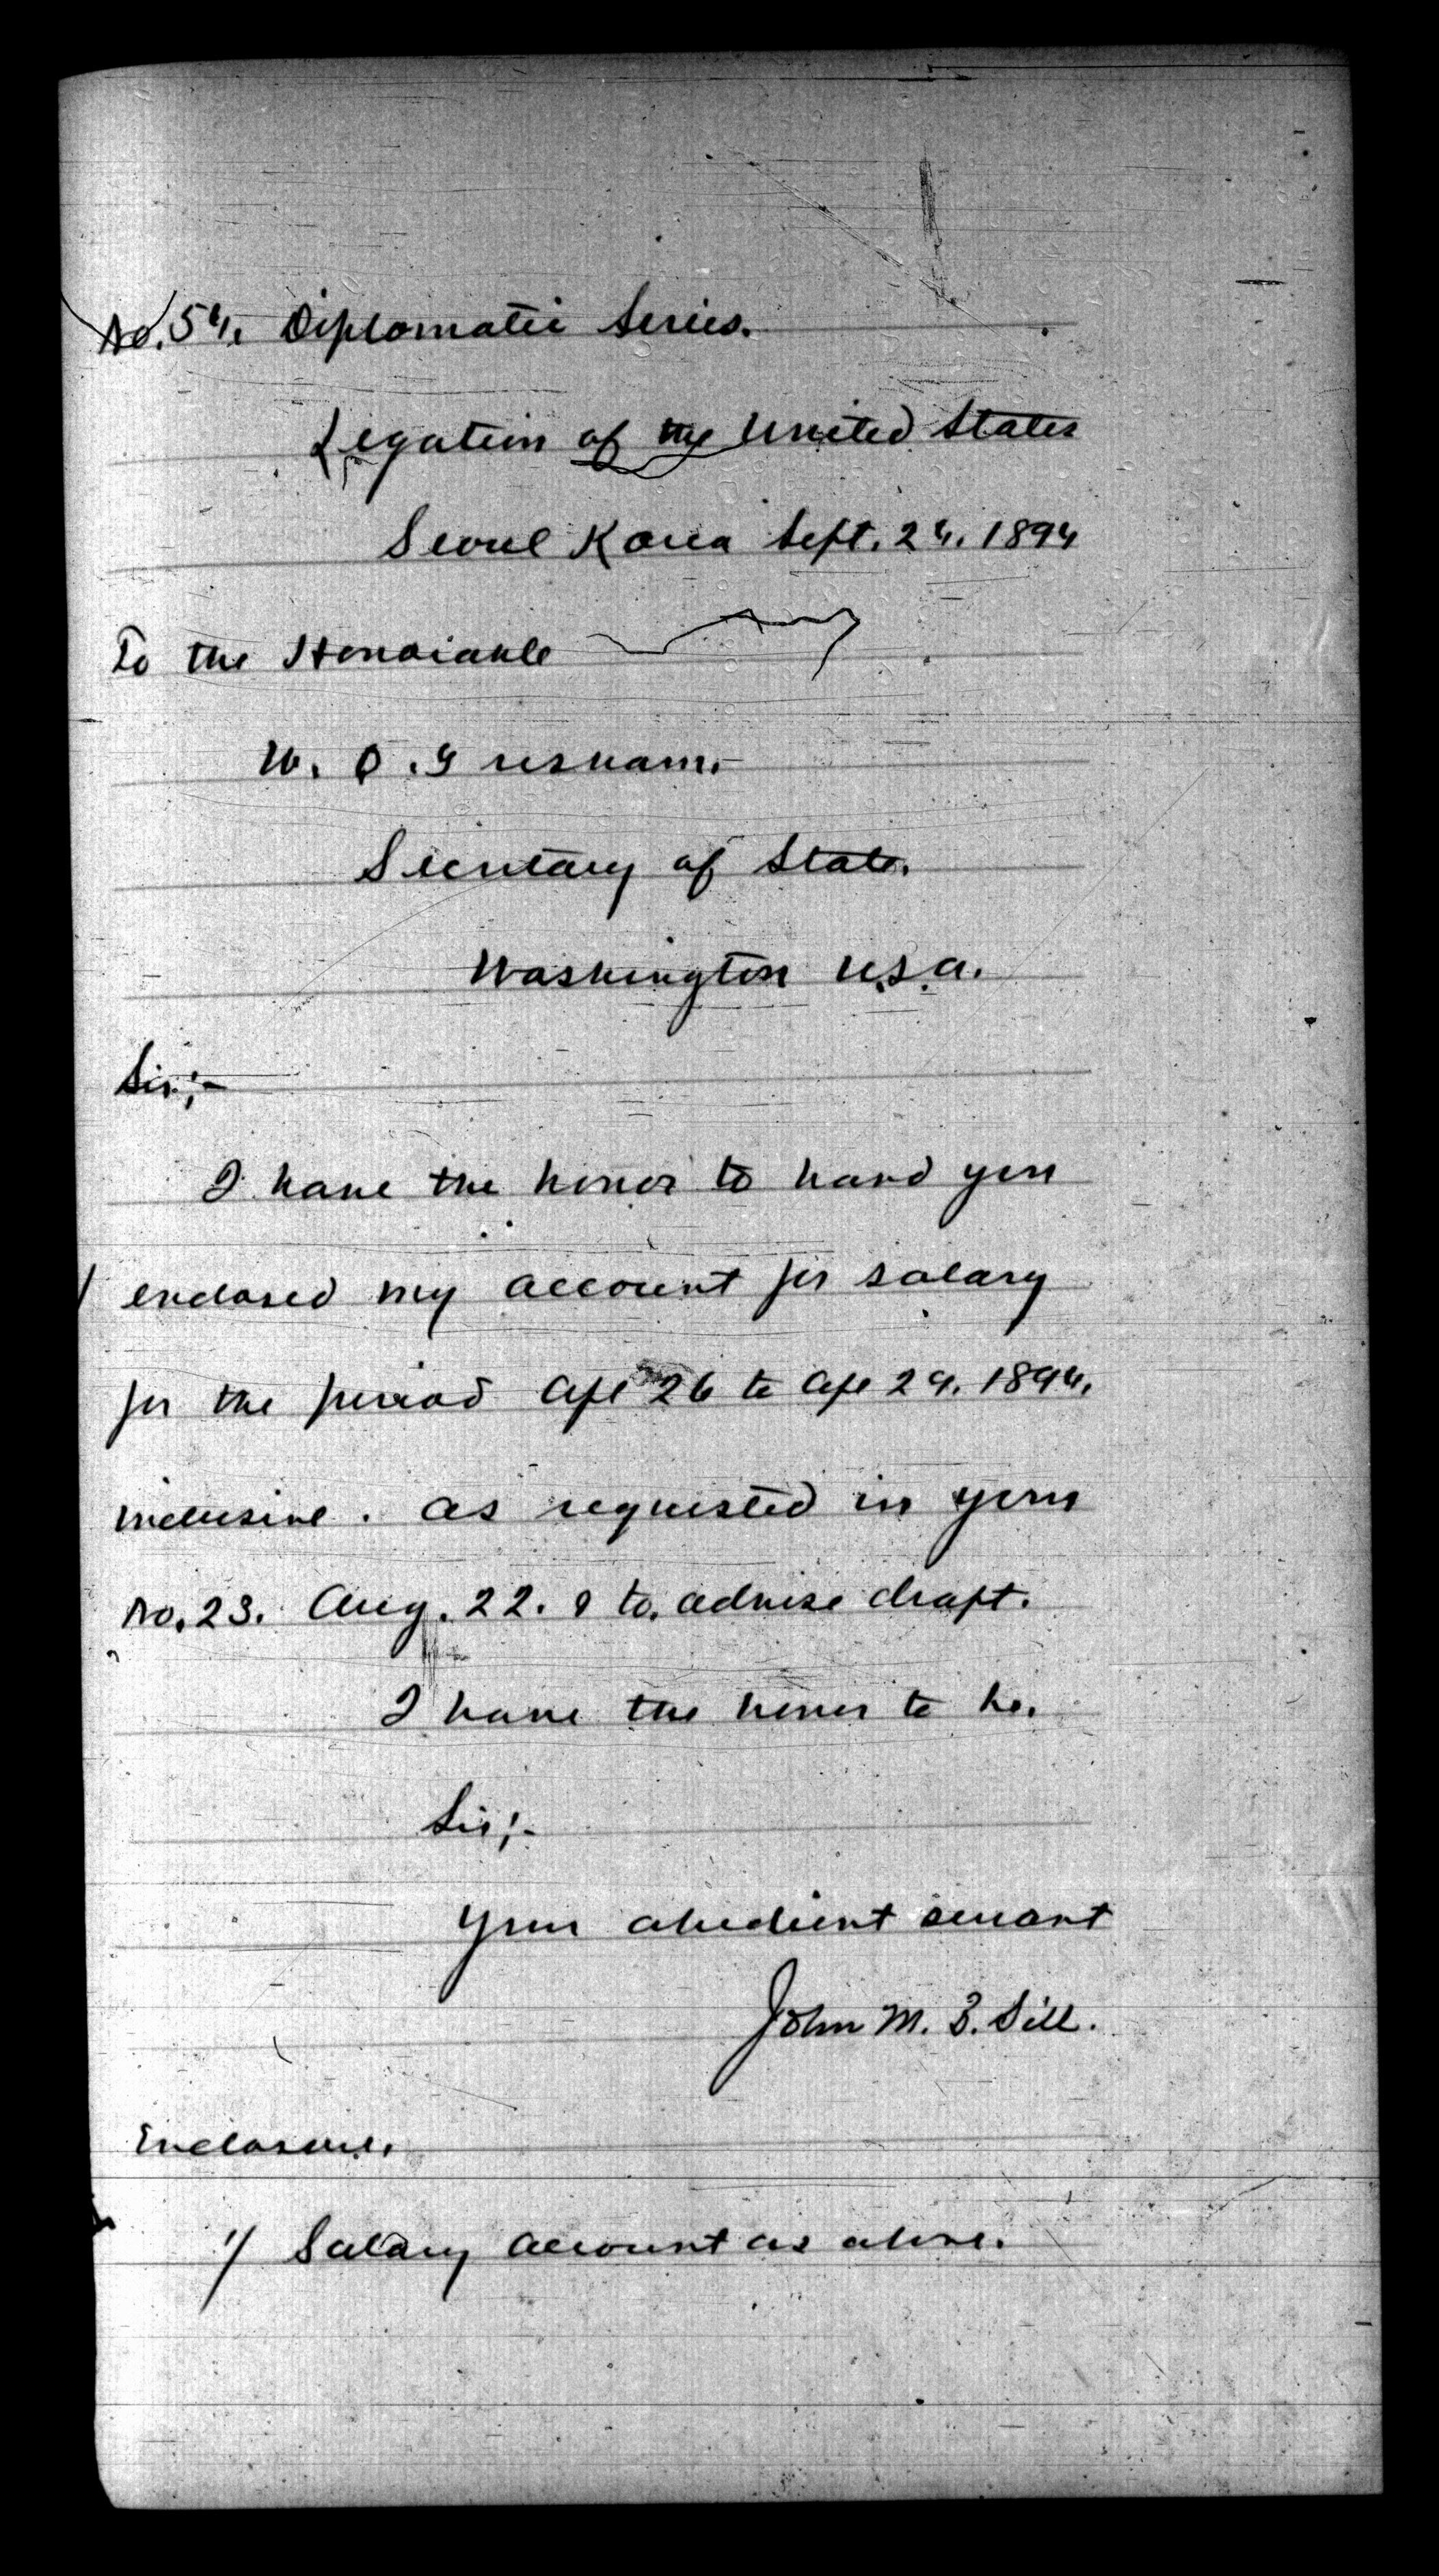 No. 54. Diplomatic Series.
Legation of the United States
Seoul Korea Sept. 24. 1894
To the Honorable
W. Q. Gresham.
Secretary of State.
Washington U.S.A.
Sir;-
I have the honor to hand you
1 enclosed my account for salary
for the period Apl 26 to Apl 29. 1894.
inclusive. as requested in your
No. 23. Aug. 22. & to. advise draft.
I have the honor to be.
Sir;-
Your obedient servant
John M. B. Sill.
Enclosure.
1/ Salary account as above.